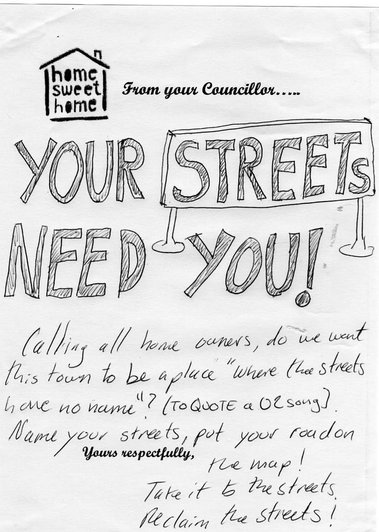 home
sweet
home
From your Councillor.....
YOUR STREETS
NEED YOU!
Calling all home owners, do we want
this town to be a place "where the streets
have no name"? [TO QUOTE a U2 song].
Name your streets, put your road on
the map!
Yours respectfully,
Take it to the streets.
Reclaim the streets!